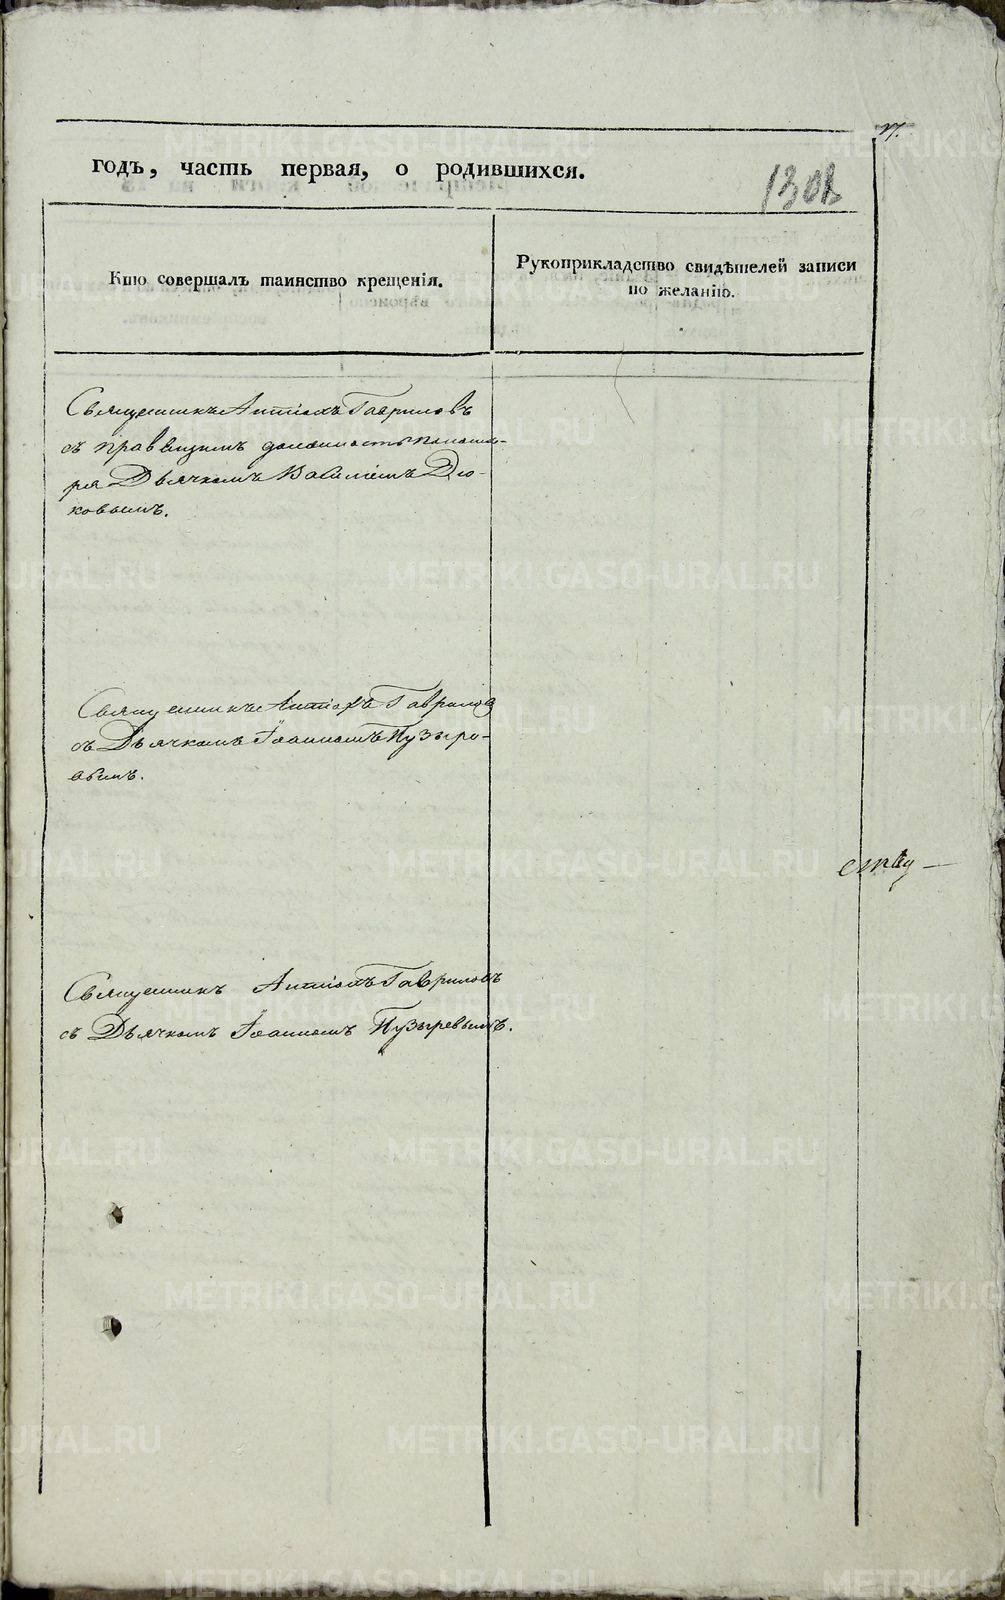 годъ, часть первая, о родившихся.
130
Кто совершалъ таинство крещенія.
Рукоприкладство свидѣтелей записи
по желанію.
Священникъ Антіохъ Гавриловъ
съ правящимъ должность понома-
ря Дьячкомъ Василіемъ Дю-
ковымъ.
Священникъ Антіохъ Гаврилов
съ Дьячкомъ Іоанномъ Пузыре-
вымъ.
Священникъ Антіохъ Гавриловъ
съ Дьячкомъ Іоанномъ Пузыревымъ.
METRIKI.GASO-URAL.RU